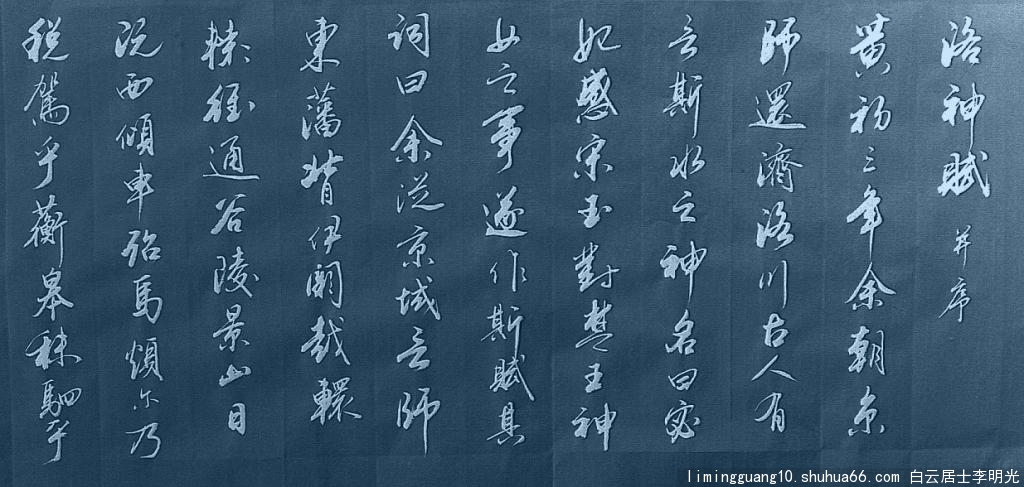 洛神賦 并序
黃初三年余朝京
師還濟洛川古人有
言斯水之神名曰宓
妃感宋玉對楚王神
女之事遂作斯賦其
詞曰余從京域言師
東藩背伊闕越轘
轅經通谷陵景山日
既西傾車殆馬煩尔乃
稅駕乎蘅皋秣駟乎
limingguang10.shuhua66.com 白云居士李明光